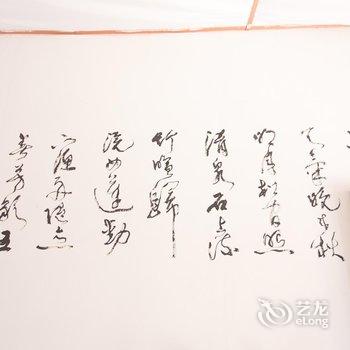 天氣晚来秋
明月松間照
清泉石上流
竹喧歸
浣女蓮動
下漁舟隨意
春芳歇王
艺龙
eLong